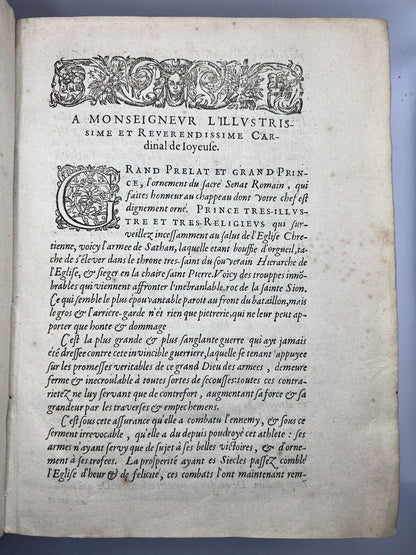 A MONSEIGNEVR L'ILLVSTRIS-
SIME ET REVERENDISSIME CAR-
dinal de Ioyeuse.
GRAND PRELAT ET GRAND PRIN-
CE, l'ornement du sacré Senat Romain, qui
faites honneur au chappeau dont votre chef est
dignement orné. PRINCE TRES-ILLVS-
TRE ET TRES-RELIGIEVS qui sur-
veillez incessamment au salut de l'Eglise Chre-
tienne, voicy l'armee de Sathan, laquelle etant bouffie d'orgueil, ta-
che de s'élever dans le throne tres-saint du souverain Hierarche de
l'Eglise, & sieger en la chaire saint Pierre. Voicy des trouppes innō-
brables qui viennent affronter l'inébranlable, roc de la sainte Sion.
Ce qui semble le plus épouvantable paroit au front du bataillon, mais
le gros & l'arriere-garde n'ét rien que pietrerie, qui ne leur peut ap-
porter que honte & dommage
C'est la plus grande & plus sanglante guerre qui ayt jamais
été dressée contre cete invincible guerriere, laquelle se tenant appuyee
sur les promesses veritables de ce grand Dieu des armees, demeure
ferme & incroulable à toutes sortes de secousses: toutes ces contra-
rietez ne luy servant que de contrefort, augmentant sa force & sa
grandeur par les traverses & empechemens.
C'est sous cete assurance qu'elle a combatu l'ennemy, & sous ce
serment irrevocable, qu'elle a du depuis poudroyé cet athlete: ses
armes n'ayant servy que de sujet à ses belles victoires, & d'orne-
ment à ses trofees. La prosperité ayant es Siecles passez comblé
l'Eglise d'heur & de felicité, ces combats l'ont maintenant rem-